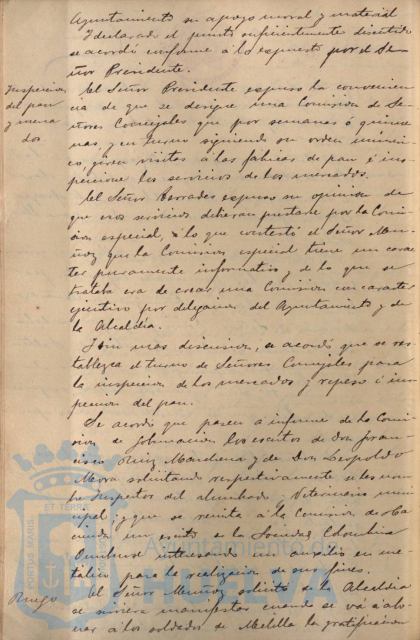 Ayuntamiento su apoyo moral y material
Y declarado el punto suficientemente discutido
se acordó conforme á lo expuesto por el Se-
ñor Presidente.
Inspeccion
del pan
y merca
dos
El Señor Presidente expuso la convenien-
cia de que se designe una Comision de Se-
ñores Concejales que por semanas ó quince-
nas, y en turno siguiendo su orden numeri-
co, giren visitas á las fábricas de pan é ins-
peccione los servicios de los mercados.
El Señor Terrades expuso su opinion de
que esos servicios deberan prestarse por la Comi-
sion especial, á lo que contestó el Señor Mu-
ñoz que la Comision especial tiene un carac-
ter puramente informativo y de lo que se
trataba era de crear una Comision con caracter
ejecutivo por delegacion del Ayuntamiento y de
la Alcaldía.
Y sin mas discusion, se acordó que se res-
tablezca el turno de Señores Concejales para
la inspeccion de los mercados y repeso é ins-
peccion del pan.
Se acordó que pasen á informe de la Comi-
sion de Gobernacion los escritos de Don Fran-
cisco Ruiz Marchena y de Don Leopoldo
Mora solicitando respectivamente se les nom-
bre Inspector del alumbrado y Veterinario muni-
cipal; y que se remita á la Comision de Ha-
cienda un escrito de la Sociedad Colombina
Onubense interesando un auxilio en me-
tálico para la realizacion de sus fines.
Ruego
El Señor Muñoz solicitó de la Alcaldía
se sirviera manifestar cuando se va á abo-
nar á los soldados de Melilla la gratificacion
PORTUS MARIS
ET TERRE
Ayuntamiento de
HUELVA